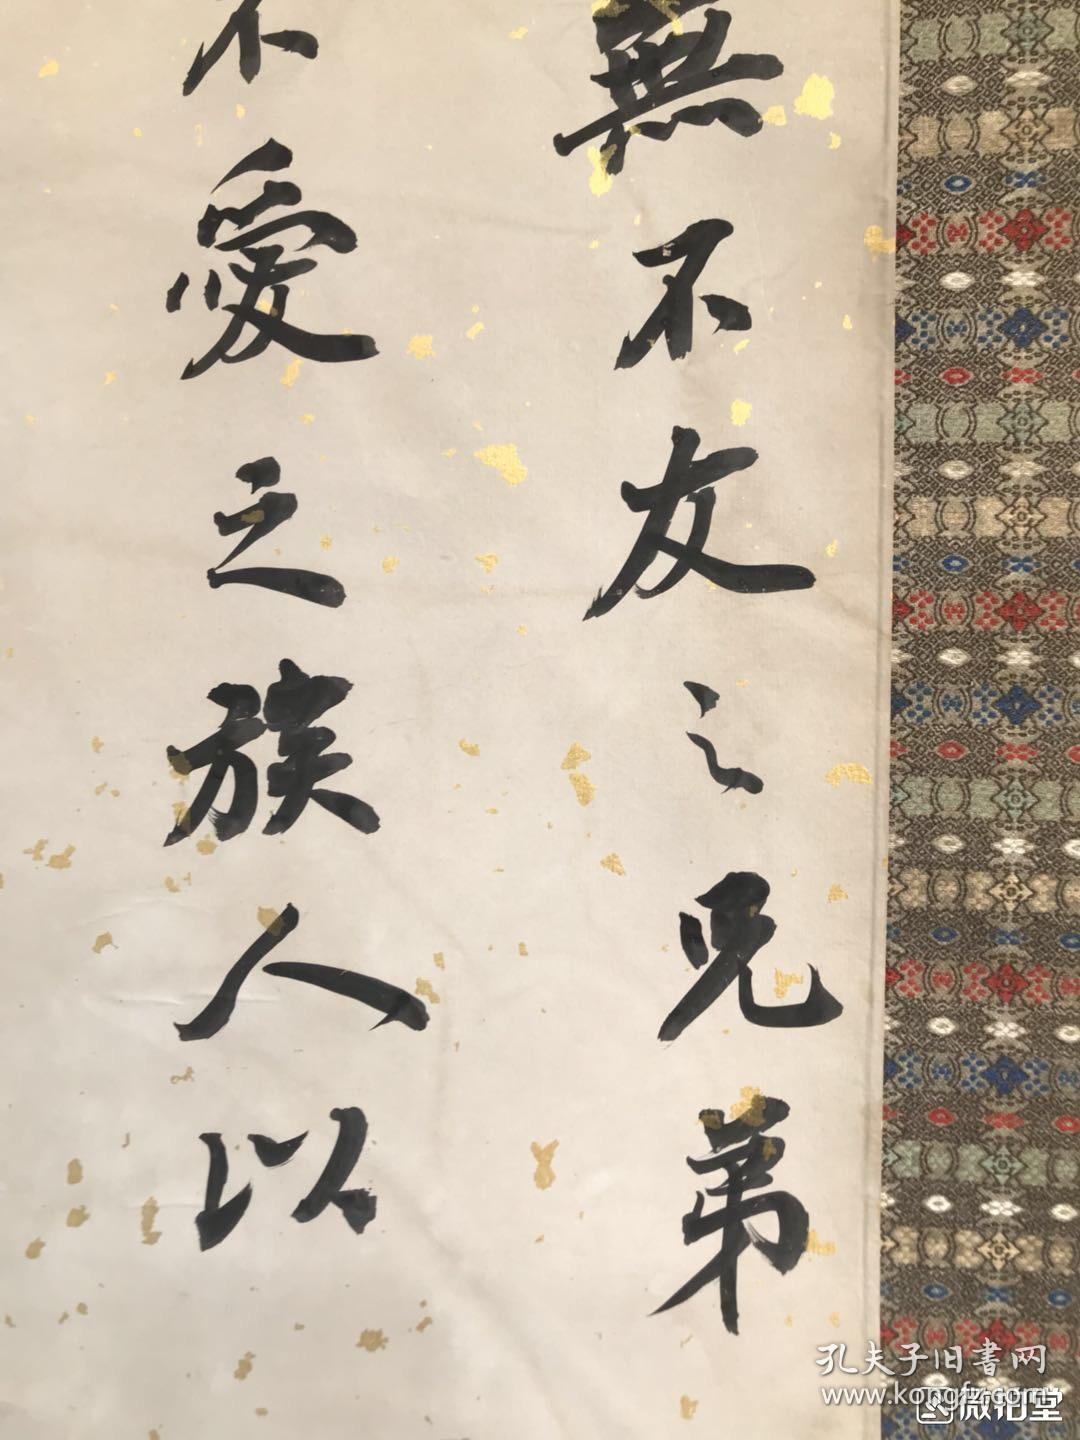 無不友之兄弟
不愛之族人以
孔夫子旧書网
www.kongfz.com
微拍堂